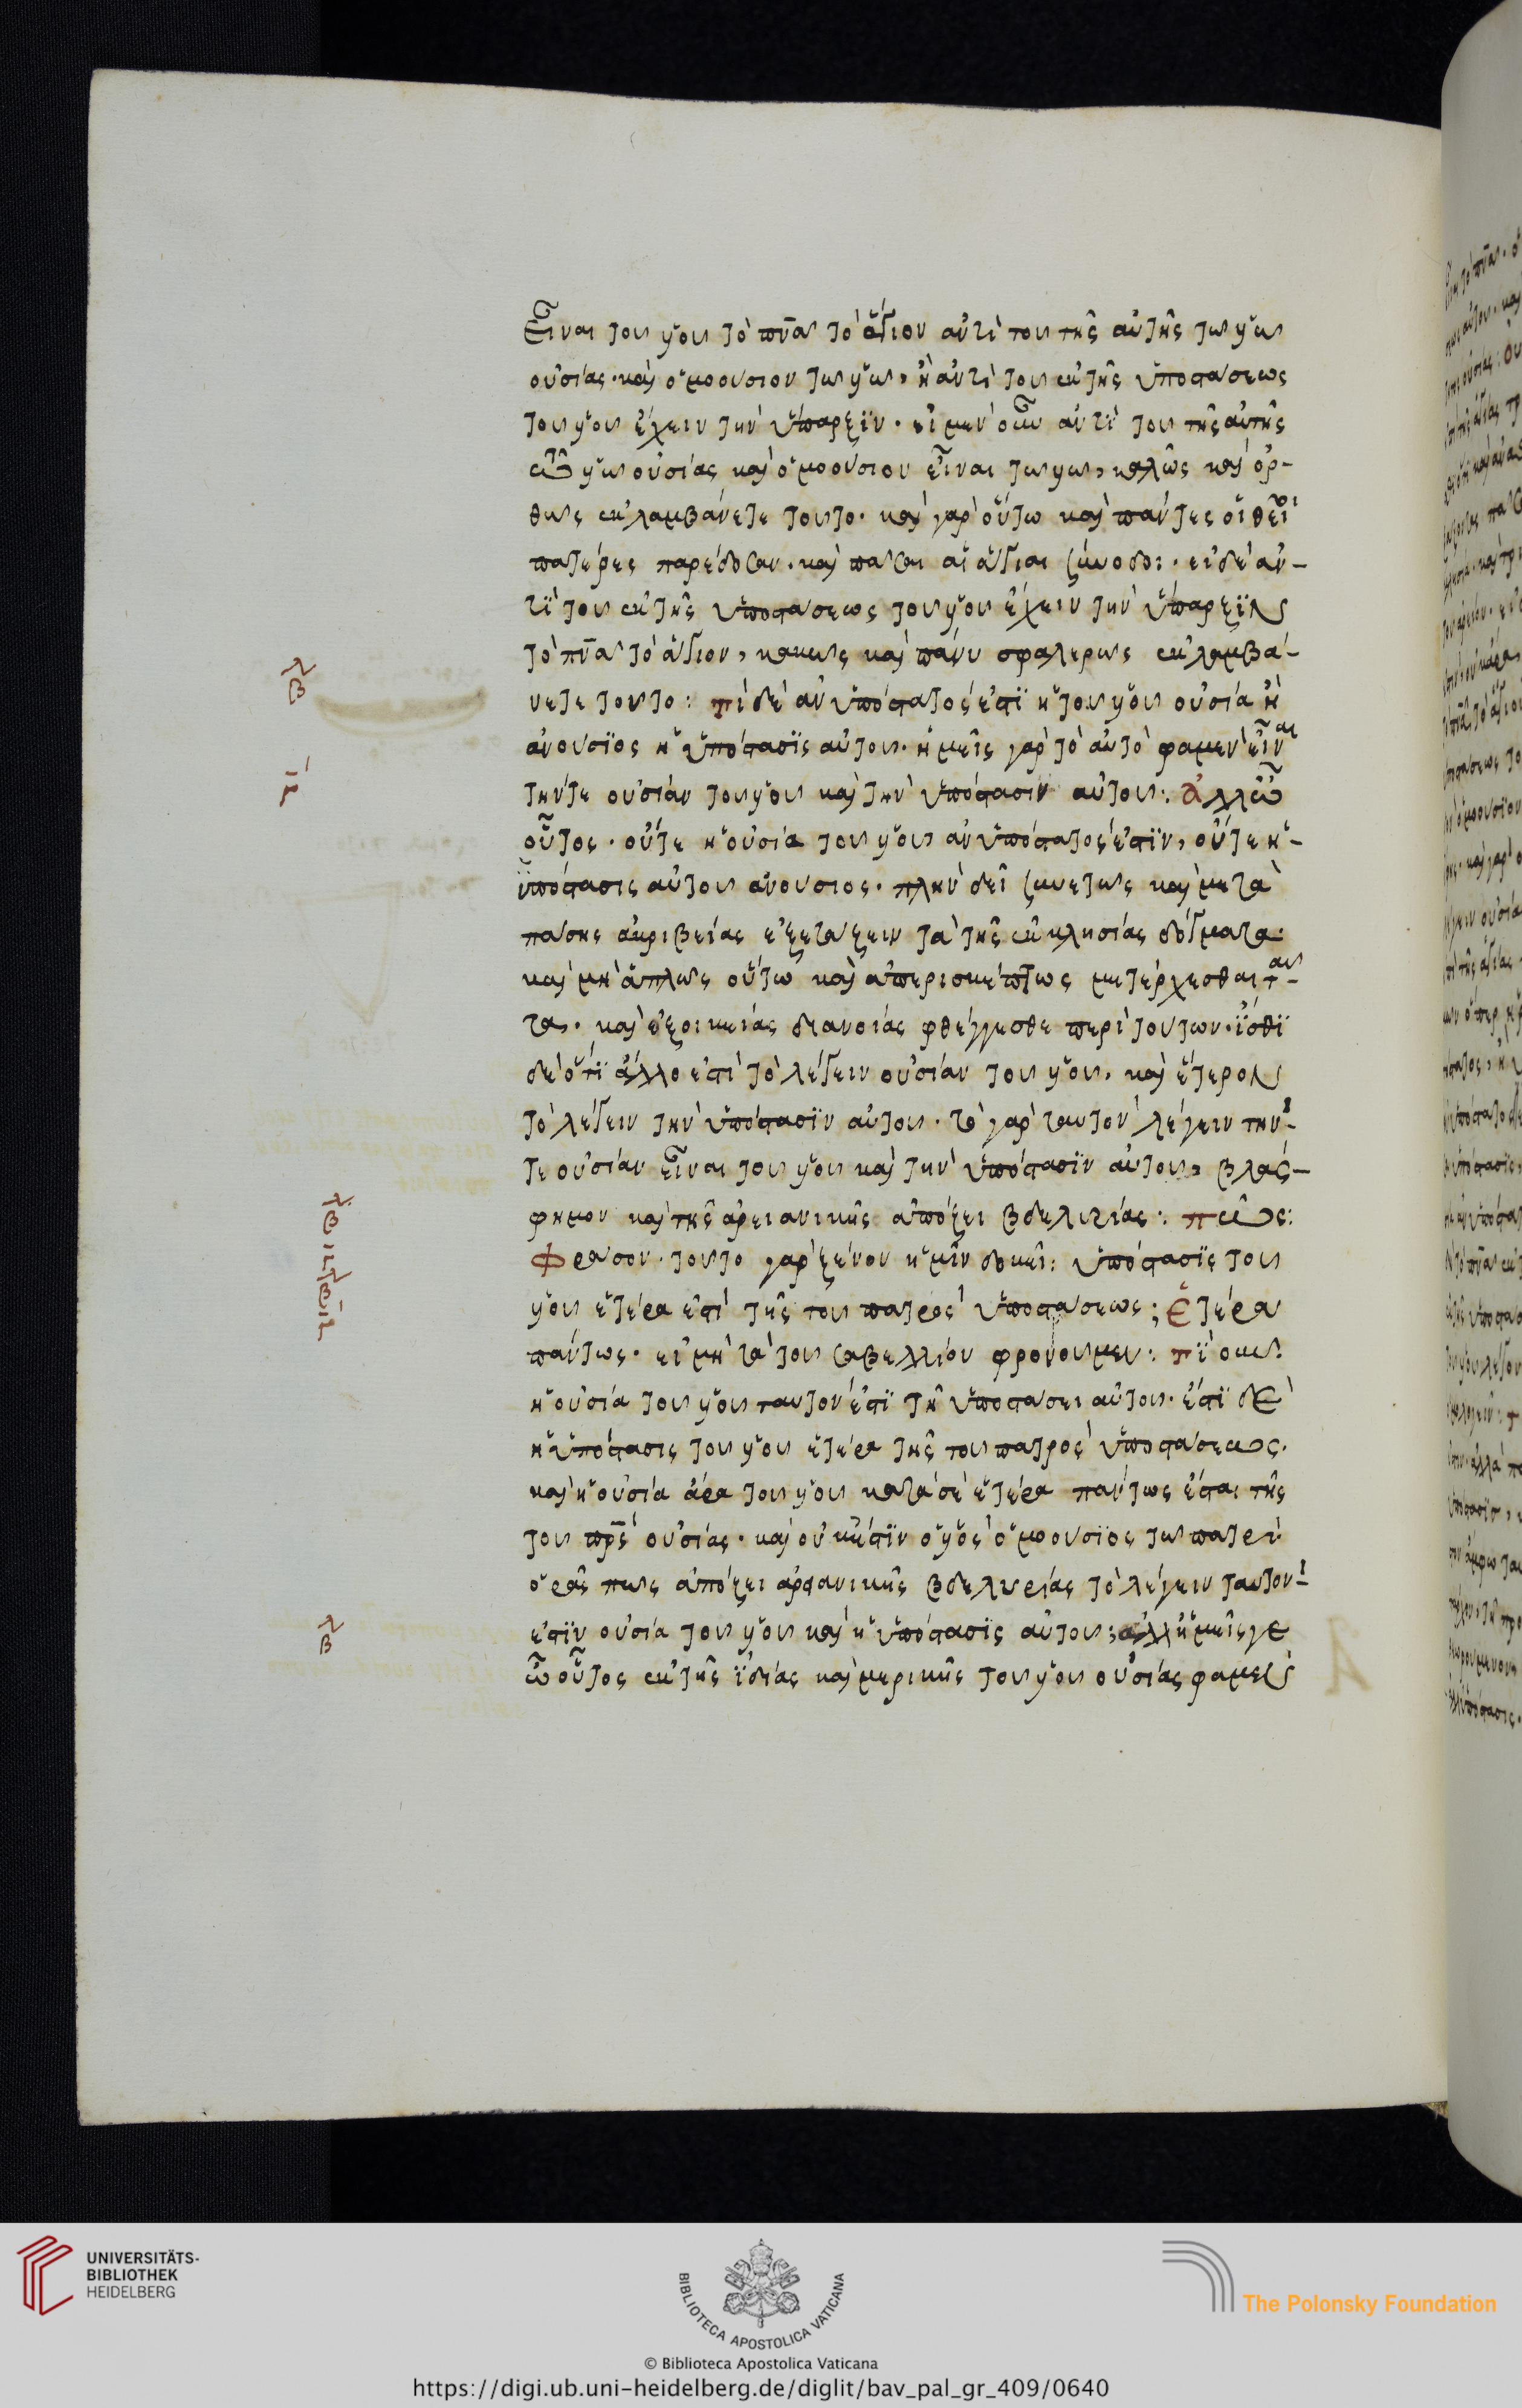 Εἶναι τοῦ υἱοῦ τὸ πνα τὸ ἅγιον ἀντὶ τοῦ τῆς αὐτῆς τῶ υἱῶ
οὐσίας. καὶ ὁμοούσιον τῶ υἱῶ, ἢ ἀντὶ τοῦ ἐκ τῆς ὑποστάσεως
τοῦ υἱοῦ ἔχειν τὴν ὕπαρξιν. εἰ μὲν οὖν ἀντὶ τοῦ τῆς αὐτῆς
τῶ υἱῶ οὐσίας καὶ ὁμοούσιον εἶναι τῶ υἱῶ, καλῶς καὶ ὀρ-
θῶς ἐκλαμβάνετε τοῦτο. καὶ γὰρ οὕτω καὶ πάντες οἱ θεῖοι
πατέρες παρέδοσαν. καὶ πᾶσαι αἱ ἅγιαι σύνοδοι. εἰ δὲ ἀν-
τὶ τοῦ ἐκ τῆς ὑποστάσεως τοῦ υἱοῦ ἔχειν τὴν ὕπαρξιν
τὸ πνα τὸ ἅγιον, κακῶς καὶ πάνυ σφαλερῶς ἐκλαμβά-
νετε τοῦτο: τί δὲ ἀνυπόστατός ἐστι ἡ τοῦ υἱοῦ οὐσία ἢ
ἀνούσιος ἡ ὑπόστασις αὐτοῦ. ἡμεῖς γὰρ τὸ αὐτὸ φαμὲν εἶναι
τήν τε οὐσίαν τοῦ υἱοῦ καὶ τὴν ὑπόστασιν αὐτοῦ: ἀλλ' ὦ
οὗτος. οὔτε ἡ οὐσία τοῦ υἱοῦ ἀνυπόστατός ἐστιν, οὔτε ἡ-
ὑπόστασις αὐτοῦ ἀνούσιος. πλὴν δεῖ συνετῶς καὶ μετὰ
πάσης ἀκριβείας ἐξετάζειν τὰ τῆς ἐκκλησίας δόγματα.
καὶ μὴ ἁπλῶς οὕτω καὶ ἀπερισκέπτως μετέρχεσθαι ταῦ-
τα. καὶ ἐξ οἰκείας διανοίας φθέγγεσθε περὶ τούτων. ἴσθι
δὲ ὅτι ἄλλο ἐστὶ τὸ λέγειν οὐσίαν τοῦ υἱοῦ, καὶ ἕτερον
τὸ λέγειν τὴν ὑπόστασιν αὐτοῦ. τὸ γὰρ ταυτὸν λέγειν τήν-
τε οὐσίαν εἶναι τοῦ υἱοῦ καὶ τὴν ὑπόστασιν αὐτοῦ, βλάσ-
φημον καὶ τῆς ἀρειανικῆς ἀπόζει βδελυρίας: πῶς:
Φράσον. τοῦτο γὰρ ξένον ἡμῖν δοκεῖ: ὑπόστασις τοῦ
υἱοῦ ἑτέρα ἐστὶ τῆς τοῦ πατρὸς ὑποστάσεως; ἑτέρα
πάντως. εἰ μὴ τὰ τοῦ σαβελλίου φρονοῦμεν: τί οὖν
ἡ οὐσία τοῦ υἱοῦ ταυτόν ἐστι τῇ ὑποστάσει αὐτοῦ. ἔστι δὲ
ἡ ὑπόστασις τοῦ υἱοῦ ἑτέρα τῆς τοῦ πατρὸς ὑποστάσεως.
καὶ ἡ οὐσία ἄρα τοῦ υἱοῦ κατὰ σὲ ἑτέρα πάντως ἔσται τῆς
τοῦ πρς οὐσίας. καὶ οὐκ ἔστιν ὁ υἱὸς ὁμοούσιος τῶ πατρί.
ὁρᾶς πῶς ἀπόζει ἀρειανικῆς βδελυρίας τὸ λέγειν ταυτόν-
ἐστιν οὐσία τοῦ υἱοῦ καὶ ἡ ὑπόστασις αὐτοῦ; ἀλλ' ἡμεῖς γε
ὦ οὗτος ἐκ τῆς ἰδίας καὶ μερικῆς τοῦ υἱοῦ οὐσίας φαμὲν
UNIVERSITÄTS-
BIBLIOTHEK
HEIDELBERG
BIBLIOTECA APOSTOLICA VATICANA
The Polonsky Foundation
© Biblioteca Apostolica Vaticana
https://digi.ub.uni-heidelberg.de/diglit/bav_pal_gr_409/0640